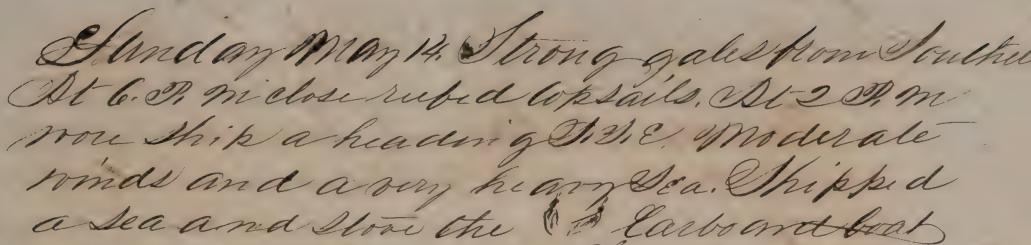 Sunday May 14. Strong gales from Southe
At 6. P. M close reefed topsails. At 2 P. M
wore ship a heading S.S.E. Moderate
winds and a very heavy Sea. Shipped
a sea and stove the Larboard boat